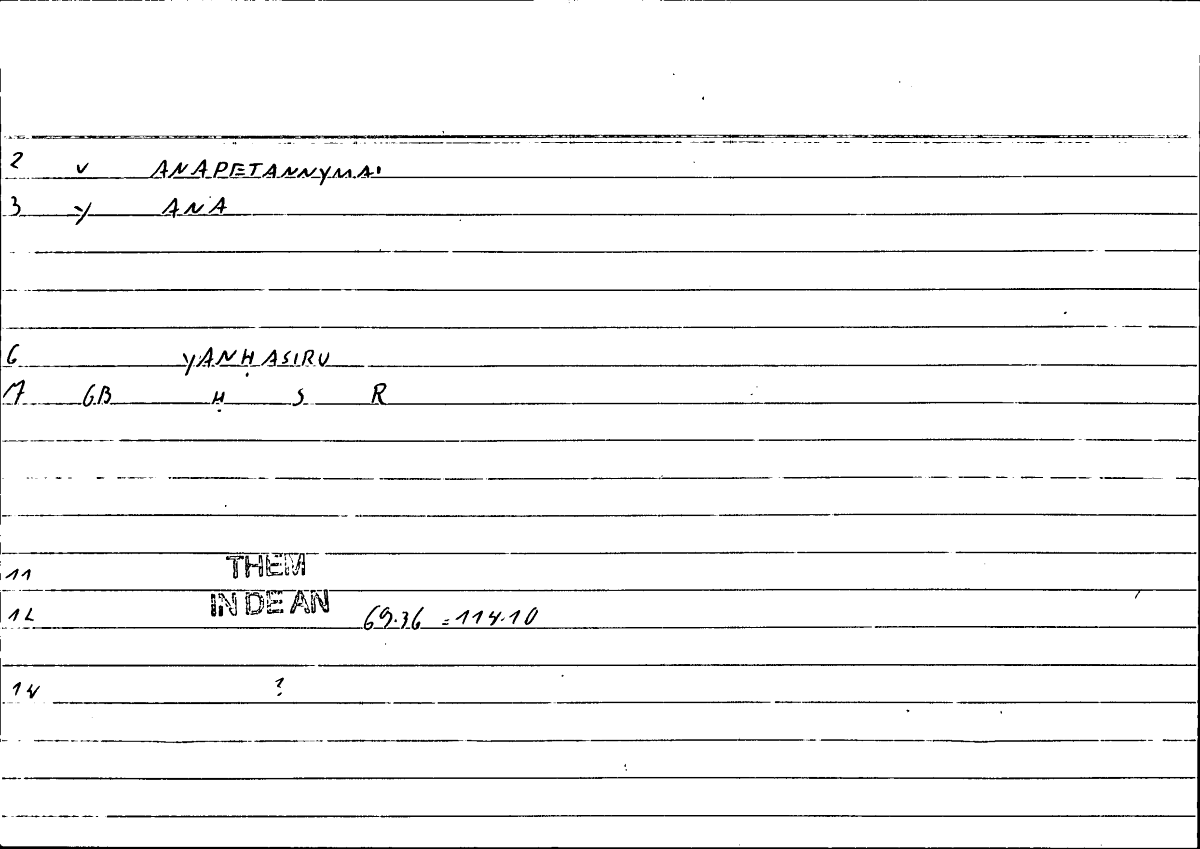 2 V ANAPETANNYMAI
3 Y ANA
6 YANḤASIRU
7 GB Ḥ S R
11 THEM
12 IN DE AN 69.36 = 114.10
14 ?